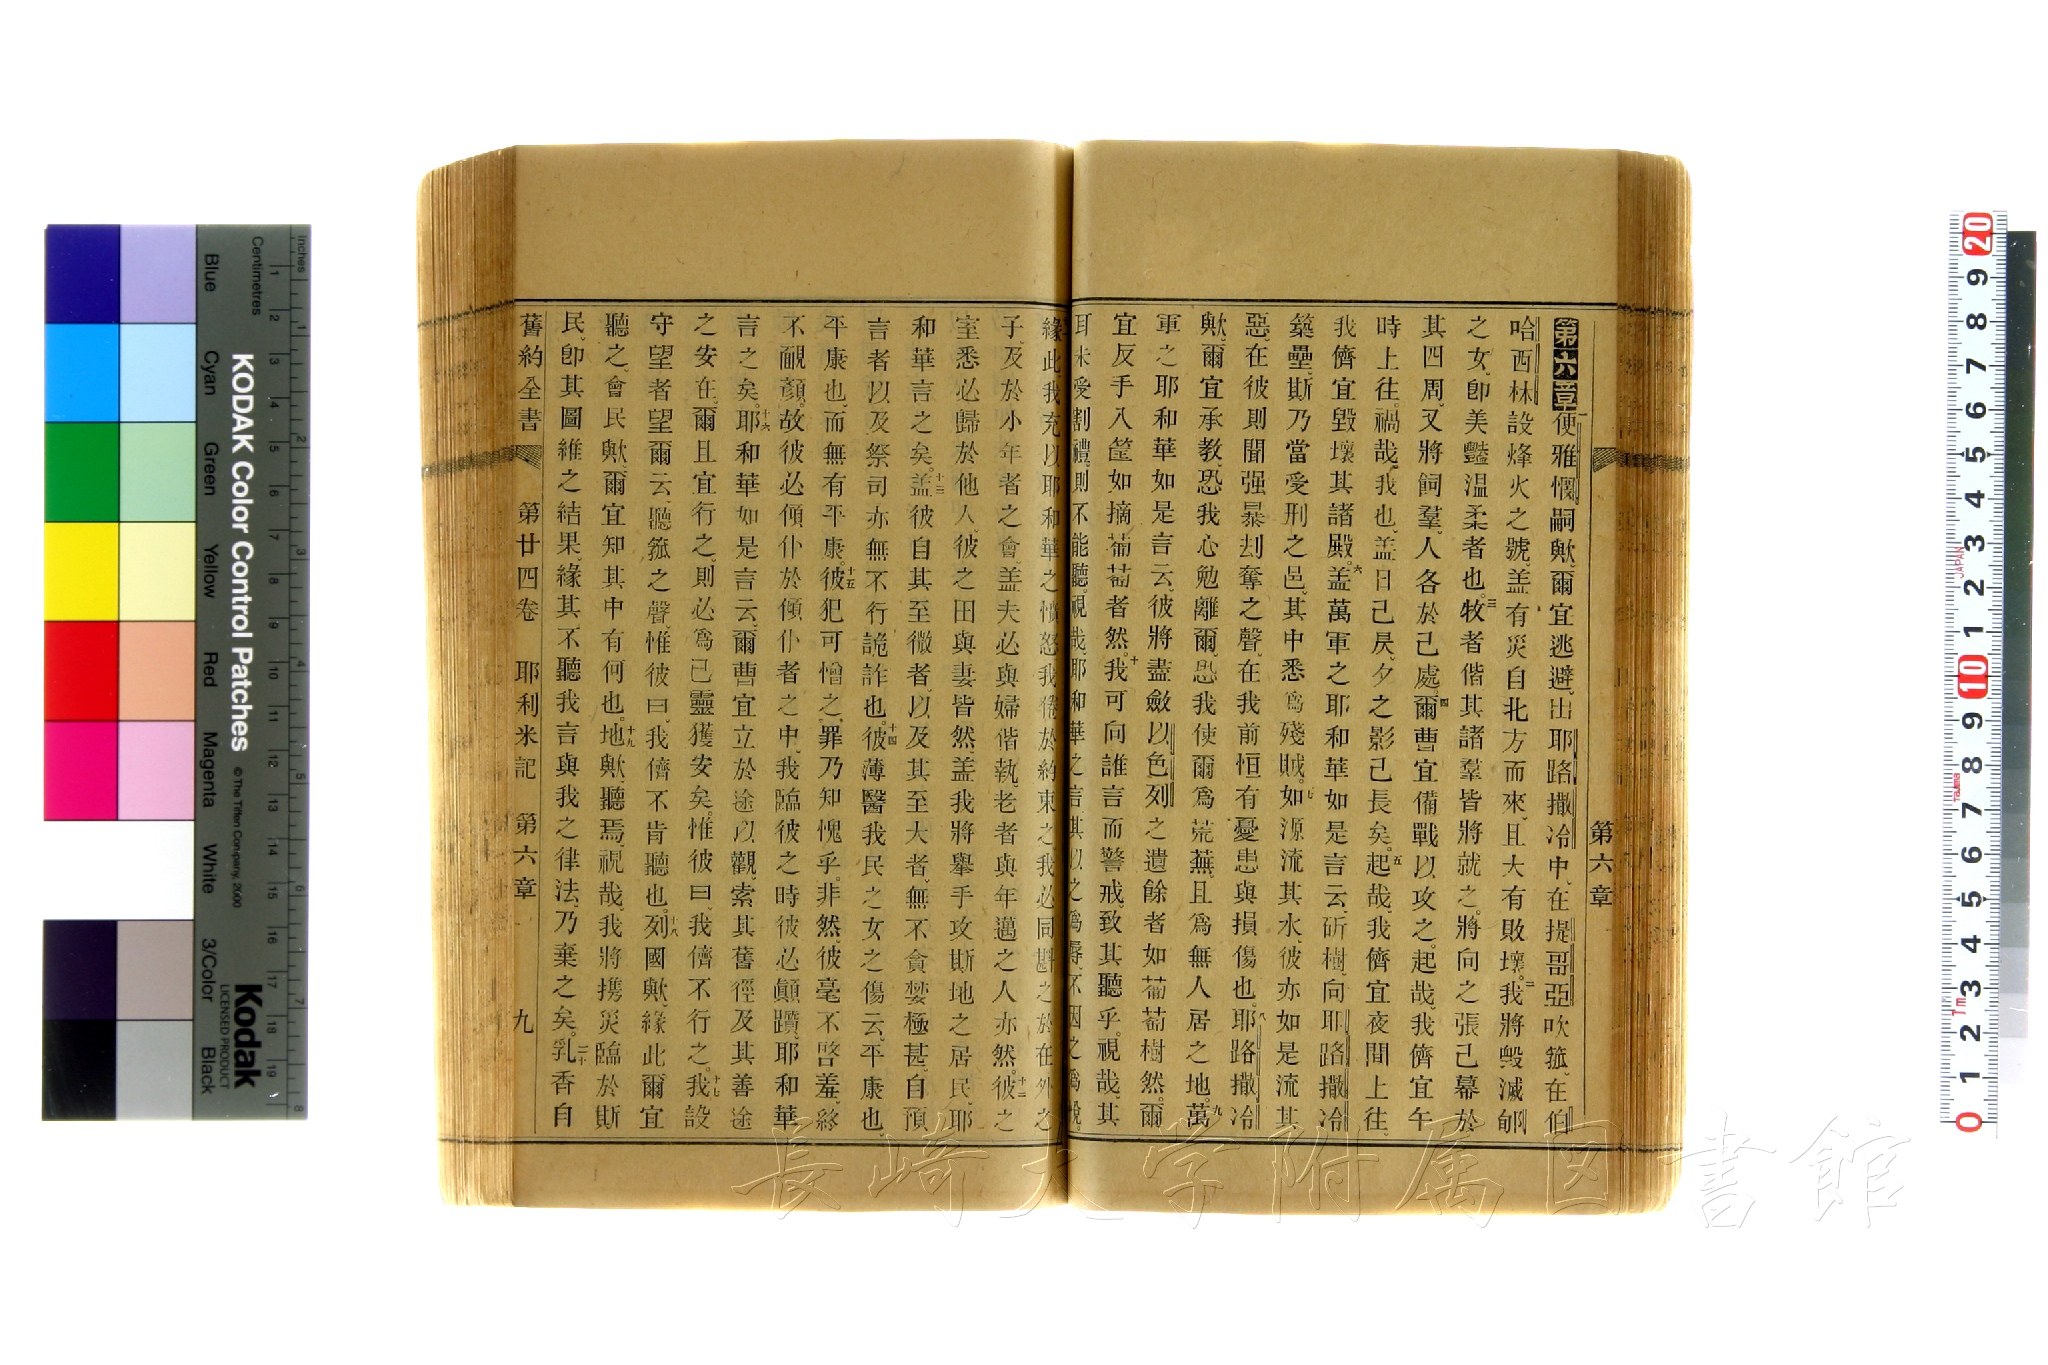 第六章
第六章便雅憫嗣歟、爾宜逃避、出耶路撒冷中、在提哥亞吹箛、在伯
哈西林設烽火之號、盖有災自北方而來、且大有敗壞。二我將毀滅郇
之女、卽美豔温柔者也。三牧者偕其諸羣皆將就之、將向之張己幕於
其四周、又將飼羣、人各於己處。四爾曹宜備戰以攻之、起哉、我儕宜午
時上往。禍哉、我也、盖日己昃、夕之影己長矣。五起哉、我儕宜夜間上往、
我儕宜毀壞其諸殿。六盖萬軍之耶和華如是言云、斫樹、向耶路撒冷
築壘、斯乃當受刑之邑、其中悉爲殘賊。七如源流其水、彼亦如是流其
惡、在彼則聞强暴刦奪之聲、在我前恒有憂患與損傷也。八耶路撒冷
歟、爾宜承教、恐我心勉離爾、恐我使爾爲荒蕪、且爲無人居之地。九萬
軍之耶和華如是言云、彼將盡斂以色列之遺餘者如葡萄樹然。爾
宜反手入筐如摘葡萄者然。十我可向誰言而警戒、致其聽乎。視哉、其
耳未受割禮、則不能聽、視哉、耶和華之言、其以之爲辱、不因之爲悅。
緣此、我充以耶和華之憤怒、我倦於約束之、我必同斟之於在外之
子、及於小年者之會、盖夫必與婦偕執、老者與年邁之人亦然。十二彼之
室悉必歸於他人、彼之田與妻皆然、盖我將擧手攻斯地之居民、耶
和華言之矣。十三盖彼自其至微者、以及其至大者、無不貪婪極甚、自預
言者以及祭司亦無不行詭詐也。十四彼薄醫我民之女之傷云、平康也、
平康也、而無有平康。十五彼犯可憎之罪、乃知愧乎。非然、彼毫不啓羞、終
不靦顏。故彼必傾仆於傾仆者之中、我臨彼之時彼必顚躓、耶和華
言之矣。十六耶和華如是言云、爾曹宜立於途以觀、索其舊徑及其善途
之安在、爾且宜行之、則必爲己靈獲安矣。惟彼曰、我儕不行之。十七我設
守望者望爾云、聽箛之聲、惟彼曰、我儕不肯聽也。十八列國歟、緣此爾宜
聽之、會民歟、爾宜知其中有何也。十九地歟、聽焉、視哉、我將攜災臨於斯
民、卽其圖維之結果、緣其不聽我言與我之律法、乃棄之矣。二十乳香自
舊約全書 第廿四卷 耶利米記 第六章 九
Inches
Centimetres
Blue
Cyan
Green
Yellow
Red
Magenta
White
3/Color
Black
KODAK Color Control Patches
© The Tiffen Company, 2000
Kodak
LICENSED PRODUCT
JAPAN
Tajima
1m
長崎大学附属図書館